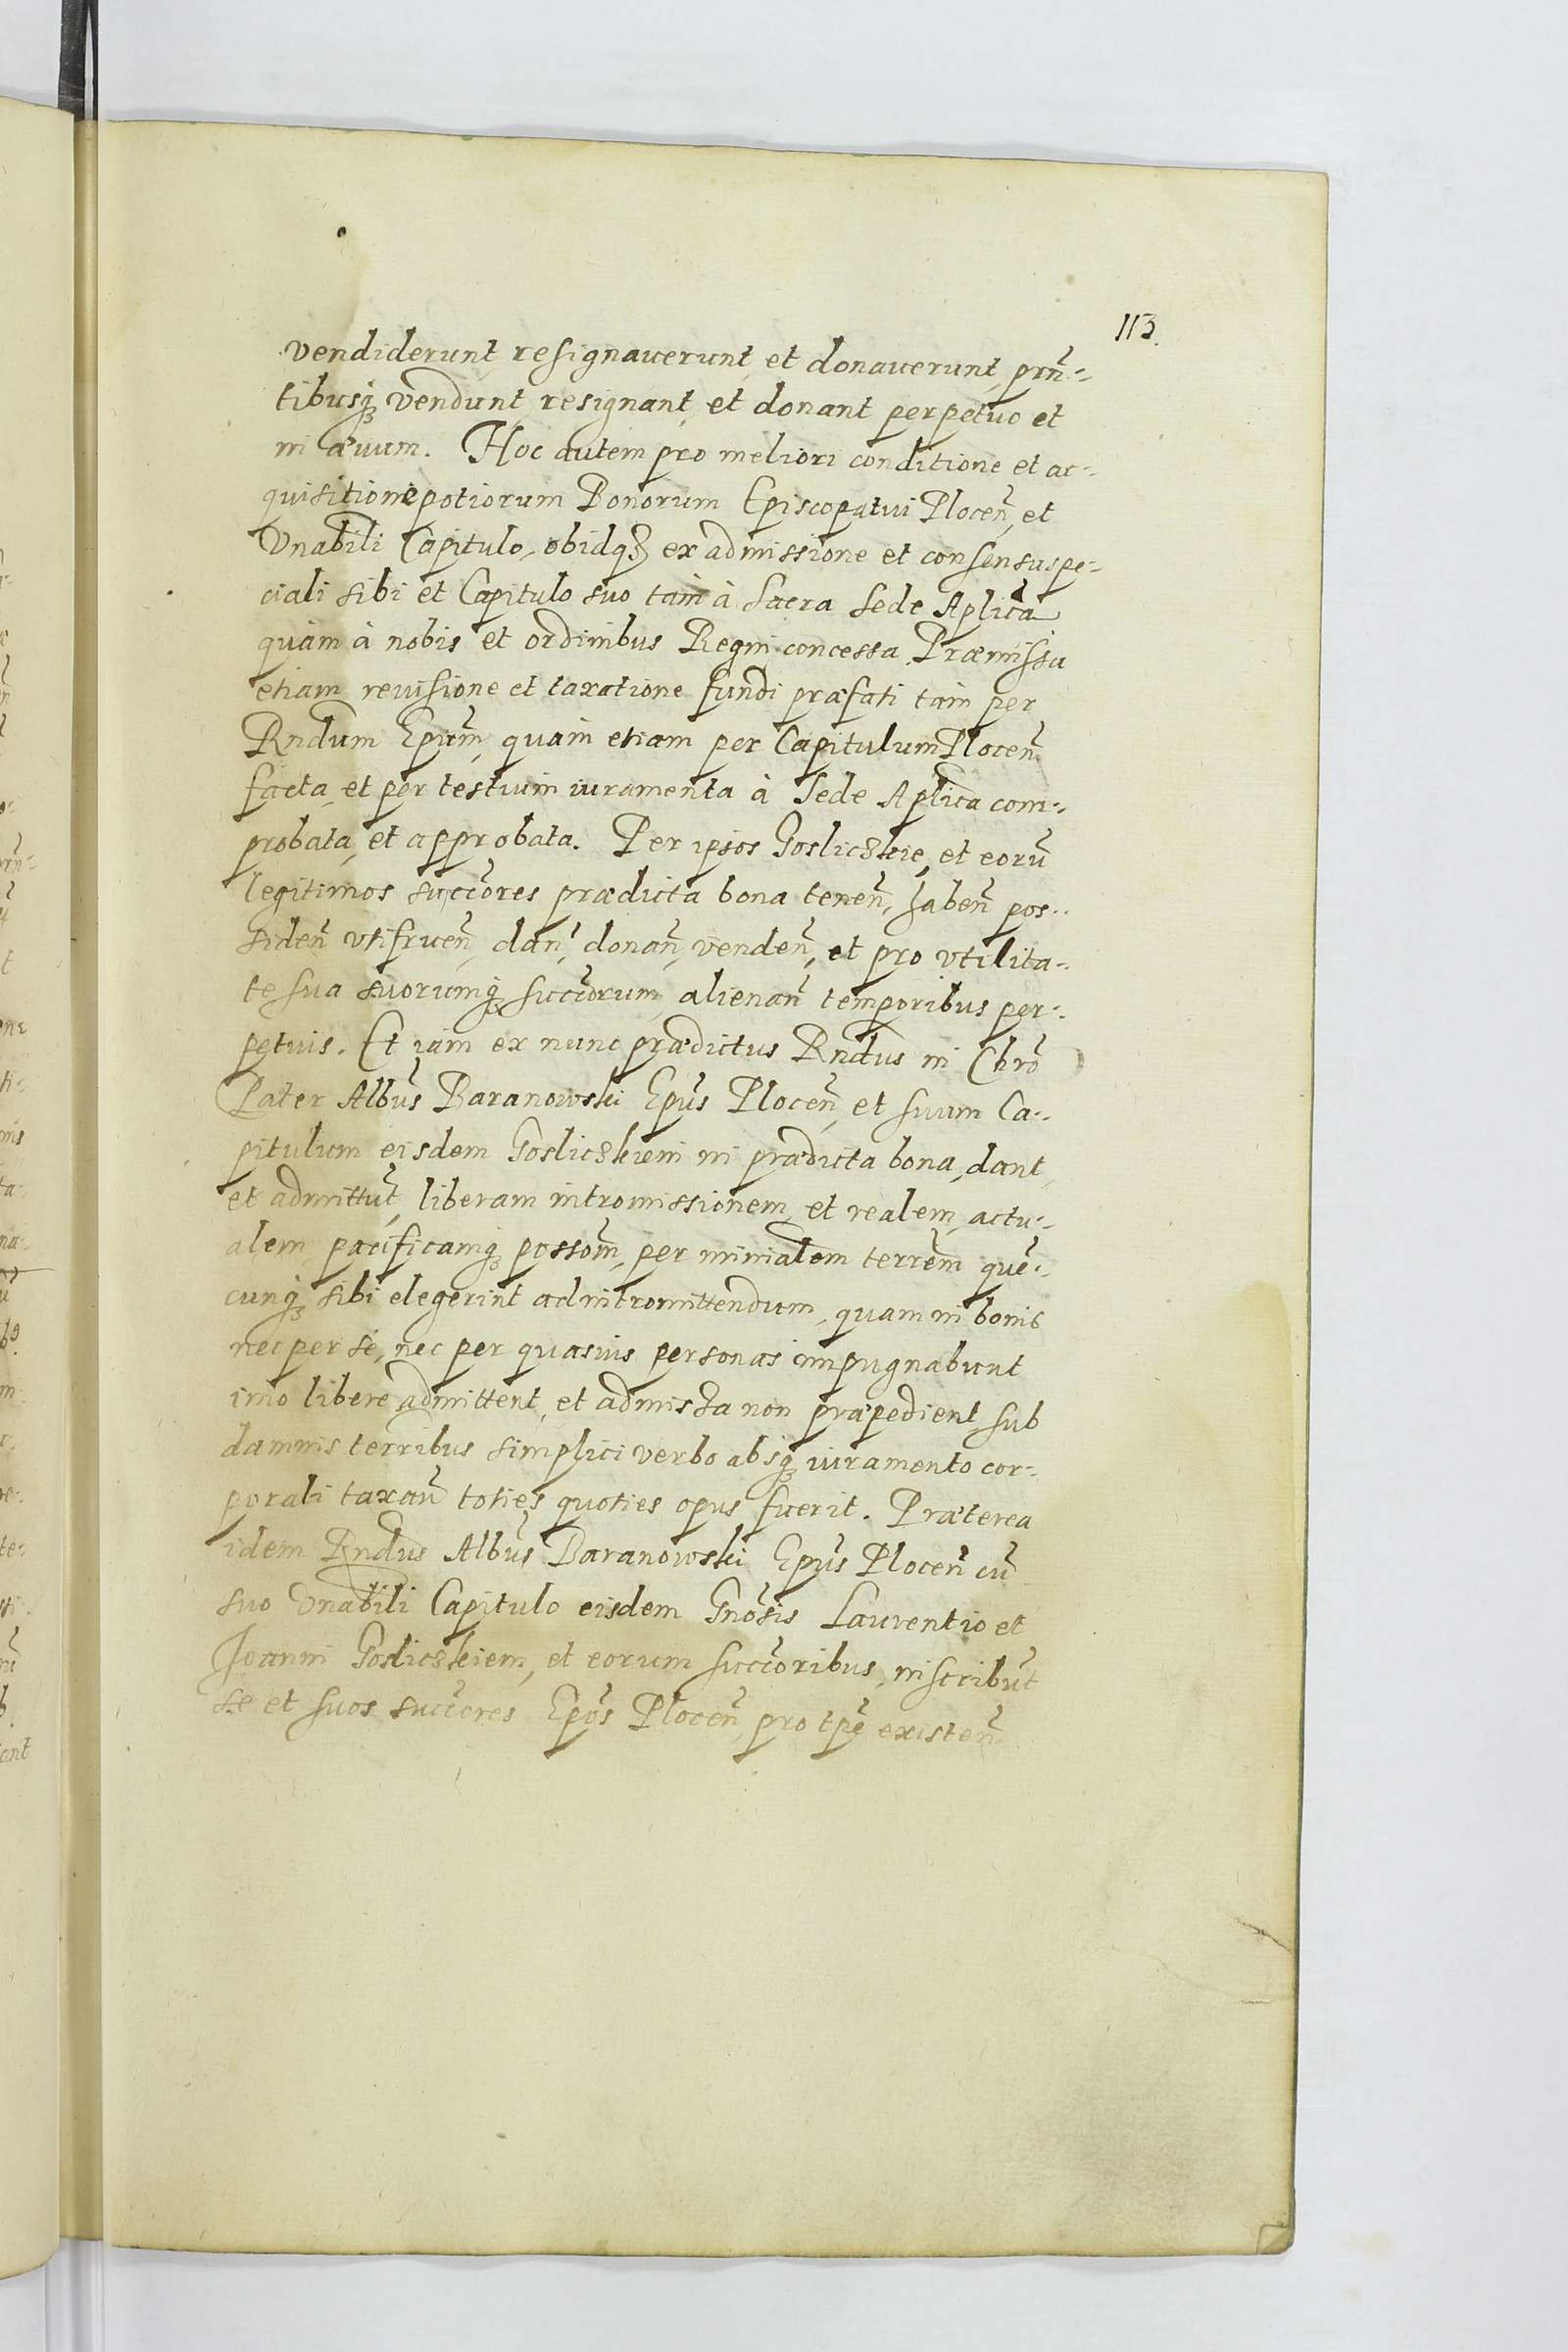 113.
vendiderunt, resignauerunt, et donauerunt, prñ-
tibusq̃ vendunt resignant, et donant perpetuo et
in æuum. Hoc autem pro meliori conditione et ac-
quisitione potiorum Bonorum Episcopatui Plocen̄, et
Vnabili Capitulo, obidq₃ ex admissione et consensu spe-
ciali sibi et Capitulo suo tam à Sacra Sede Aplica
quàm à nobis et ordinibus Regni concessa. Præmissa
etiam reuisione et taxatione fundi præfati tam per
Rndum Epum̄, quàm etiam per Capitulum Plocen̄
facta, et per testium iuramenta à Sede Aplica com-
probata, et approbata. Per ipsos Goslicskie, et eorū
legitimos succ̄ores prædicta bona tenen̄, haben̄ pos-
siden̄ vtifruen̄, dan̄, donan̄, venden̄, et pro vtilita-
te sua suorumq̃ succ̄orum alienan̄ temporibus per-
petuis. Et iam ex nunc prædictus Rndus in Chrō
Pater Albūs Baranowski Epūs Plocen̄, et suum Ca-
pitulum eisdem Goslicskiem in prædicta bona, dant,
et admittūt, liberam intromissionem, et realem, actu-
alem, pacificamq̃ possom̄, per minialem terrēm quē-
cunq̃ sibi elegerint ad intromittendum, quam in bonis
nec per se, nec per quasuis personas impugnabunt
imo libere admittent, et admissa non præpedient, sub
damnis terribus simplici verbo absq̃ iuramento cor-
porali taxan̄ toties quoties opus fuerit. Præterea
idem Rndus Albūs Baranowski Epūs Plocen̄ cū
suo Vnabili Capitulo eisdem Gnōsis Laurentio et
Joanni Goslicskiem, et eorum succ̄oribus, inscribūt
se et suos succ̄ores Epōs Plocen̄ pro tpē existen̄